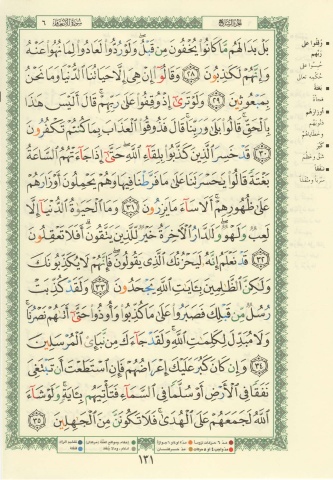 الجزء السابع
سورة الأنعام
٦
بَلْ بَدَا لَهُم مَّا كَانُوا۟ يُخْفُونَ مِن قَبْلُ ۖ وَلَوْ رُدُّوا۟ لَعَادُوا۟ لِمَا نُهُوا۟ عَنْهُ
وَإِنَّهُمْ لَكَـٰذِبُونَ ﴿٢٨﴾ وَقَالُوٓا۟ إِنْ هِىَ إِلَّا حَيَاتُنَا ٱلدُّنْيَا وَمَا نَحْنُ
بِمَبْعُوثِينَ ﴿٢٩﴾ وَلَوْ تَرَىٰٓ إِذْ وُقِفُوا۟ عَلَىٰ رَبِّهِمْ ۚ قَالَ أَلَيْسَ هَـٰذَا
بِٱلْحَقِّ ۚ قَالُوا۟ بَلَىٰ وَرَبِّنَا ۚ قَالَ فَذُوقُوا۟ ٱلْعَذَابَ بِمَا كُنتُمْ تَكْفُرُونَ
﴿٣٠﴾ قَدْ خَسِرَ ٱلَّذِينَ كَذَّبُوا۟ بِلِقَآءِ ٱللَّهِ ۖ حَتَّىٰٓ إِذَا جَآءَتْهُمُ ٱلسَّاعَةُ
بَغْتَةً قَالُوا۟ يَـٰحَسْرَتَنَا عَلَىٰ مَا فَرَّطْنَا فِيهَا وَهُمْ يَحْمِلُونَ أَوْزَارَهُمْ
عَلَىٰ ظُهُورِهِمْ ۚ أَلَا سَآءَ مَا يَزِرُونَ ﴿٣١﴾ وَمَا ٱلْحَيَوٰةُ ٱلدُّنْيَآ إِلَّا
لَعِبٌ وَلَهْوٌ ۖ وَلَلدَّارُ ٱلْـَٔاخِرَةُ خَيْرٌ لِّلَّذِينَ يَتَّقُونَ ۗ أَفَلَا تَعْقِلُونَ
﴿٣٢﴾ قَدْ نَعْلَمُ إِنَّهُۥ لَيَحْزُنُكَ ٱلَّذِى يَقُولُونَ ۖ فَإِنَّهُمْ لَا يُكَذِّبُونَكَ
وَلَـٰكِنَّ ٱلظَّـٰلِمِينَ بِـَٔايَـٰتِ ٱللَّهِ يَجْحَدُونَ ﴿٣٣﴾ وَلَقَدْ كُذِّبَتْ
رُسُلٌ مِّن قَبْلِكَ فَصَبَرُوا۟ عَلَىٰ مَا كُذِّبُوا۟ وَأُوذُوا۟ حَتَّىٰٓ أَتَىٰهُمْ نَصْرُنَا ۚ
وَلَا مُبَدِّلَ لِكَلِمَـٰتِ ٱللَّهِ ۚ وَلَقَدْ جَآءَكَ مِن نَّبَإِى۟ ٱلْمُرْسَلِينَ
﴿٣٤﴾ وَإِن كَانَ كَبُرَ عَلَيْكَ إِعْرَاضُهُمْ فَإِنِ ٱسْتَطَعْتَ أَن تَبْتَغِىَ
نَفَقًا فِى ٱلْأَرْضِ أَوْ سُلَّمًا فِى ٱلسَّمَآءِ فَتَأْتِيَهُم بِـَٔايَةٍ ۚ وَلَوْ شَآءَ
ٱللَّهُ لَجَمَعَهُمْ عَلَى ٱلْهُدَىٰ ۚ فَلَا تَكُونَنَّ مِنَ ٱلْجَـٰهِلِينَ ﴿٣٥﴾
وُقِفُوا على
ربهم
بغتة
فجأة
أوزارهم
كبر
نفقا
١٣١